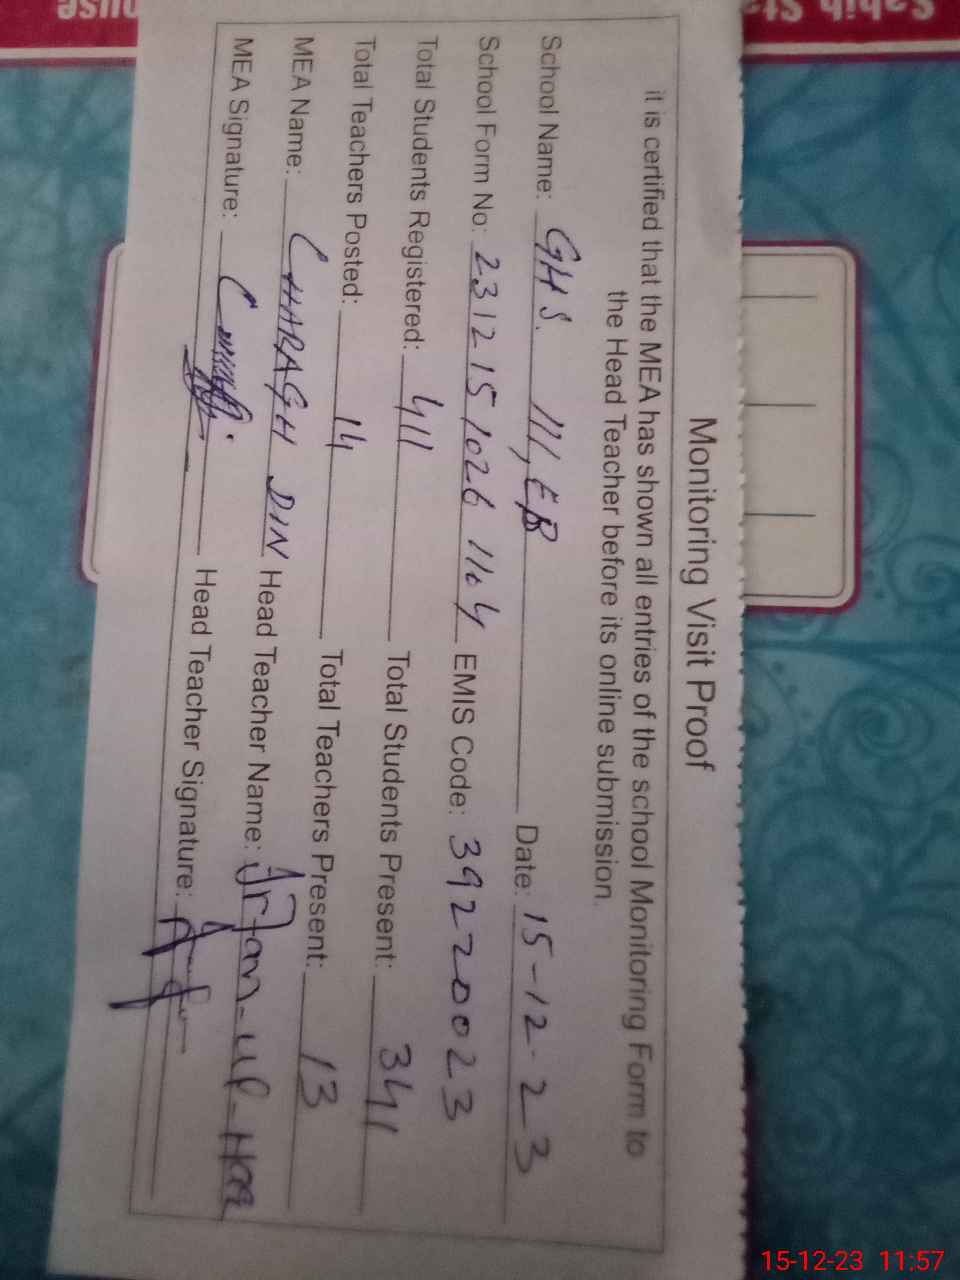 Monitoring Visit Proof
it is certified that the MEA has shown all entries of the school Monitoring Form to
the Head Teacher before its online submission.
School Name: GHS. 111, EB Date: 15-12-23
School Form No: 231215 1026 1104 EMIS Code: 39220023
Total Students Registered: 411 Total Students Present: 341
Total Teachers Posted: 14 Total Teachers Present: 13
MEA Name: CHARAGH DIN Head Teacher Name: Irfan-ul-Haq
MEA Signature: Head Teacher Signature:
15-12-23 11:57